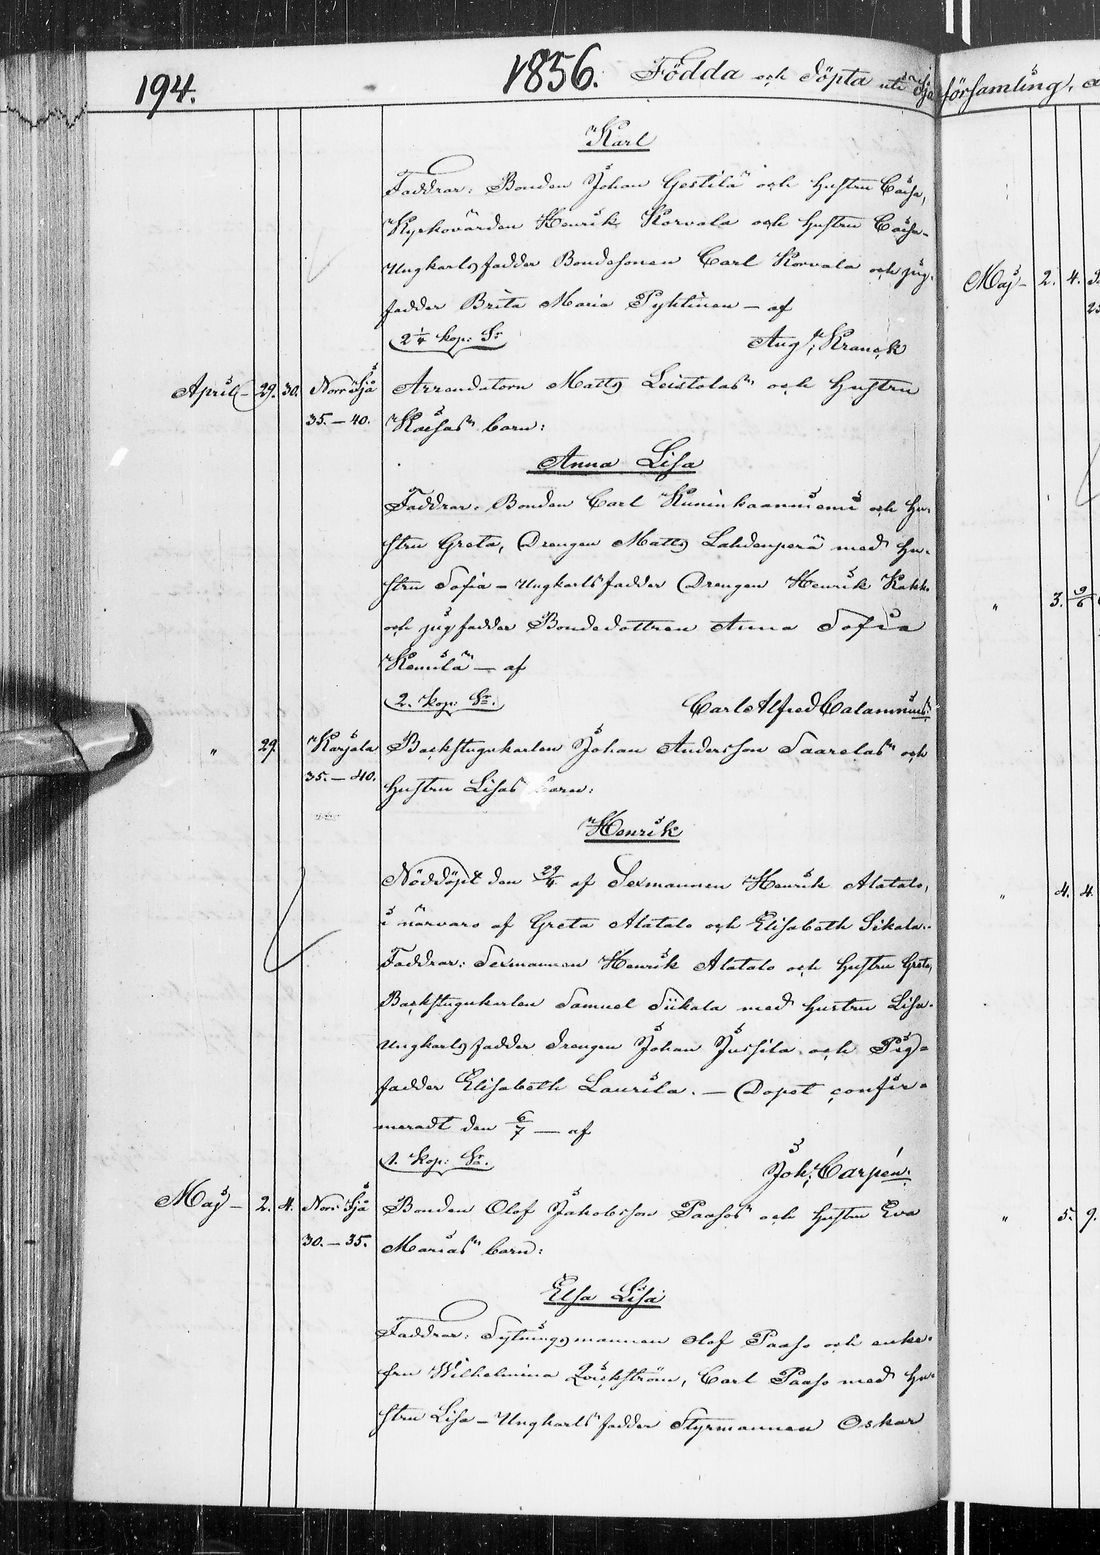 194. 1856. Födda och döpta uti Ijo församling, a
Karl
Faddrar: Bonden Johan Gestilä och hustru Caisa,
Kyrkovärden Henrik Korvala och hustru Caisa-
Ungkarlsfadder Bondesonen Carl Korvala och pig-
fadder Brita Maria Pyhtinen — af
2¼ kop: Sr
Aug: Kranck
April — 29. 30. Norr Ijå Arrendatorn Matts Leistolas och hustru
35. — 40. Kaisas barn:
Anna Lisa
Faddrar. Bonden Carl Kuninkaanniemi och hu-
stru Greta, Drengen Matts Lahdenperä med hu-
stru Sofia — Ungkarlsfadder Drengen Henrik Kakko
och pigfadder Bondedottren Anna Sofia
Kemilä — af
2. kop: Sr.
Carl Alfred Calamnius.
" 29. Karjala Backstugukarlen Johan Andersson Saarelas och
35. — 40. hustru Lisas barn:
Henrik
Nöddöpt den 29/4 af Sexmannen Henrik Alatalo,
i närvaro af Greta Alatalo och Elisabeth Sikala.
Faddrar: Sexmannen Henrik Alatalo och hustru Greta,
Backstugukarlen Samuel Siikala med hustru Lisa.
Ungkarlsfadder drengen Johan Jussila och Pig-
fadder Elisabeth Laurila. — Dopet confir-
meradt den 6/7 — af
1. kop: Sr.
Joh: Carpén.
Maj — 2. 4. Norr Ijå Bonden Olof Jakobsson Paasos och hustru Eva
30. — 35. Marias barn:
Elsa Lisa
Faddrar: Sytningsmannen Olof Paaso och enke-
fru Wilhelmina Qvickström, Carl Paaso med hu-
stru Lisa — Ungkarlsfadder Styrmannen Oskar
Maj — 2. 4.
" 3. 9/6
" 4. 4.
" 5. 9.